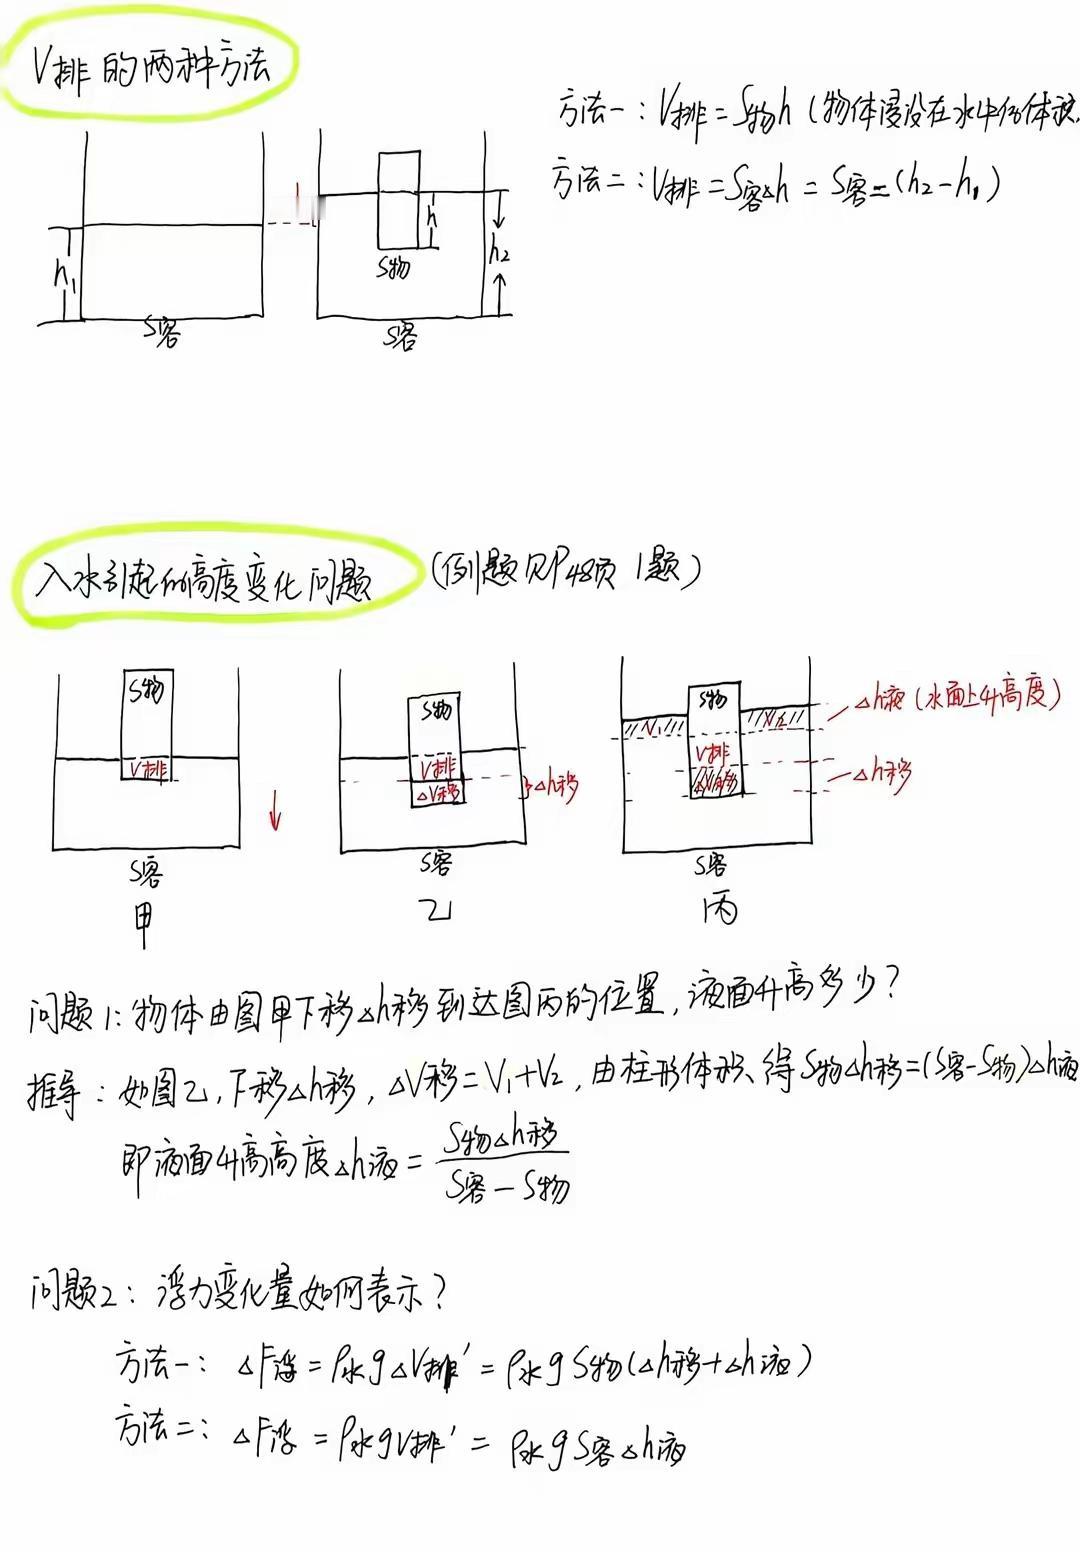 V排的两种方法
方法一：V排＝S物h（物体浸没在水中的体积
方法二：V排＝S容△h＝S容＝(h2－h1)
h1
h
h2
S物
S容
S容
入水引起的高度变化问题
（例题见P48页 1题）
S物
V排
S容
甲
S物
V排
△V移
△h移
S容
乙
S物
V1
V2
V排
△V移
△h液（水面上升高度）
△h移
S容
丙
问题1：物体由图甲下移△h移到达图丙的位置，液面升高多少？
推导：如图乙，下移△h移，△V移＝V1＋V2，由柱形体积、得S物△h移＝(S容－S物)△h液
即液面升高高度△h液＝S物△h移/S容－S物
问题2：浮力变化量如何表示？
方法一：△F浮＝ρ水g△V排′＝ρ水gS物(△h移＋△h液)
方法二：△F浮＝ρ水gV排′＝ρ水gS容△h液